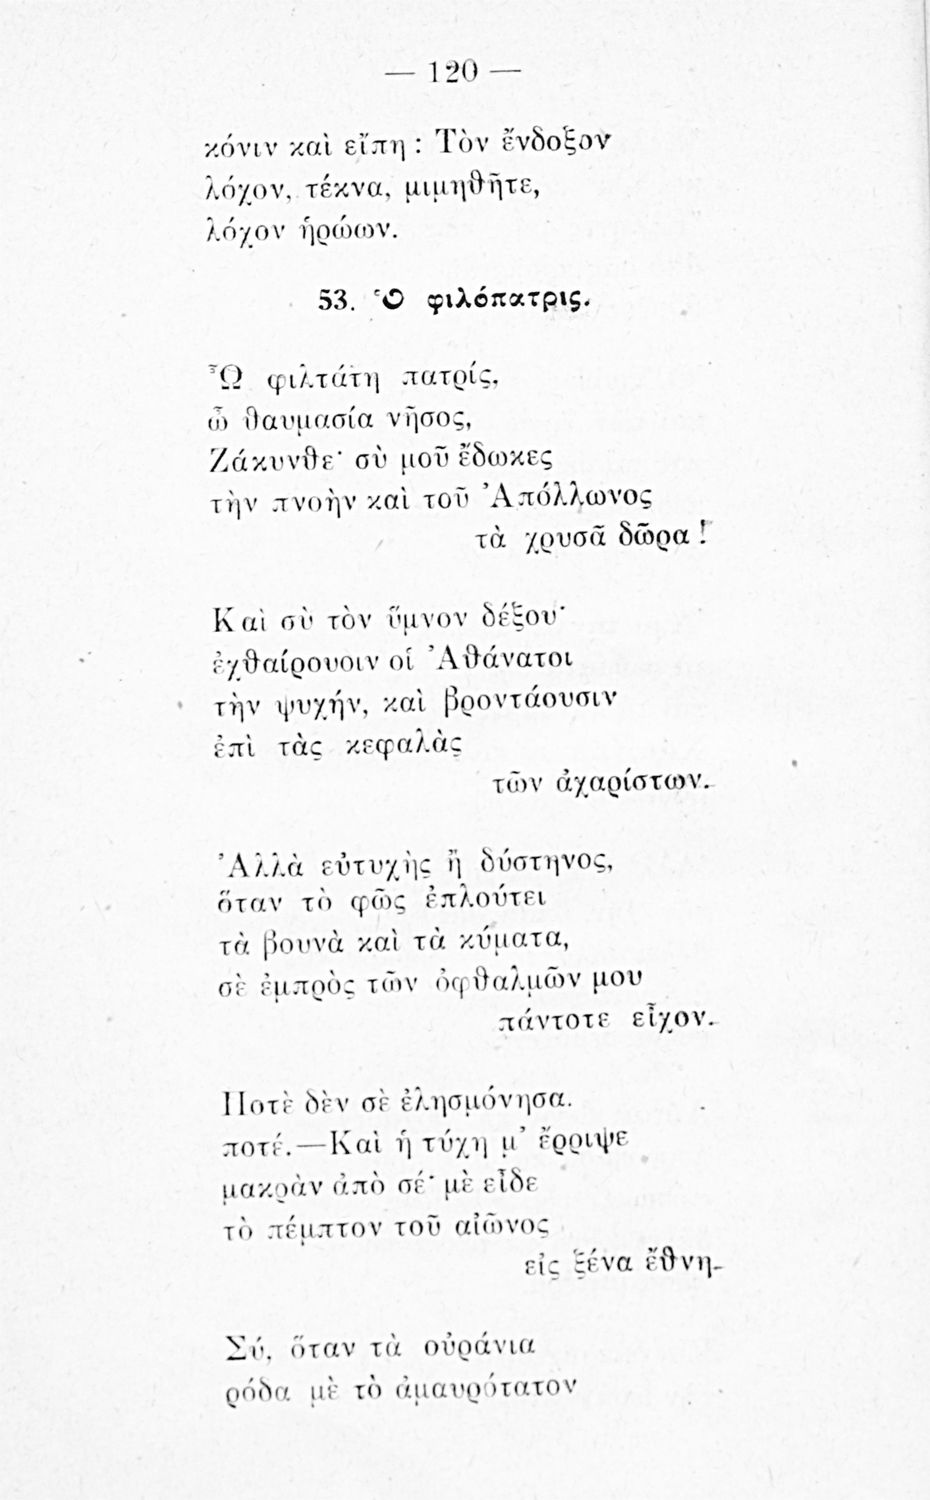 — 120 —
κόνιν καὶ εἴπη : Τὸν ἔνδοξον
λόχον, τέκνα, μιμηθῆτε,
λόχον ἡρώων.
53. Ὁ φιλόπατρις.
Ὦ φιλτάτη πατρίς,
ὦ θαυμασία νῆσος,
Ζάκυνθε· σὺ μοῦ ἔδωκες
τὴν πνοὴν καὶ τοῦ Ἀπόλλωνος
τὰ χρυσᾶ δῶρα !
Καὶ σὺ τὸν ὕμνον δέξου·
ἐχθαίρουοιν οἱ Ἀθάνατοι
τὴν ψυχήν, καὶ βροντάουσιν
ἐπὶ τὰς κεφαλὰς
τῶν ἀχαρίστων.
Ἀλλὰ εὐτυχὴς ἢ δύστηνος,
ὅταν τὸ φῶς ἐπλούτει
τὰ βουνὰ καὶ τὰ κύματα,
σὲ ἐμπρὸς τῶν ὀφθαλμῶν μου
πάντοτε εἶχον.
Ποτὲ δὲν σὲ ἐλησμόνησα.
ποτέ.—Καὶ ἡ τύχη μ’ ἔρριψε
μακρὰν ἀπὸ σέ· μὲ εἶδε
τὸ πέμπτον τοῦ αἰῶνος
εἰς ξένα ἔθνη.
Σύ, ὅταν τὰ οὐράνια
ρόδα μὲ τὸ ἀμαυρότατον